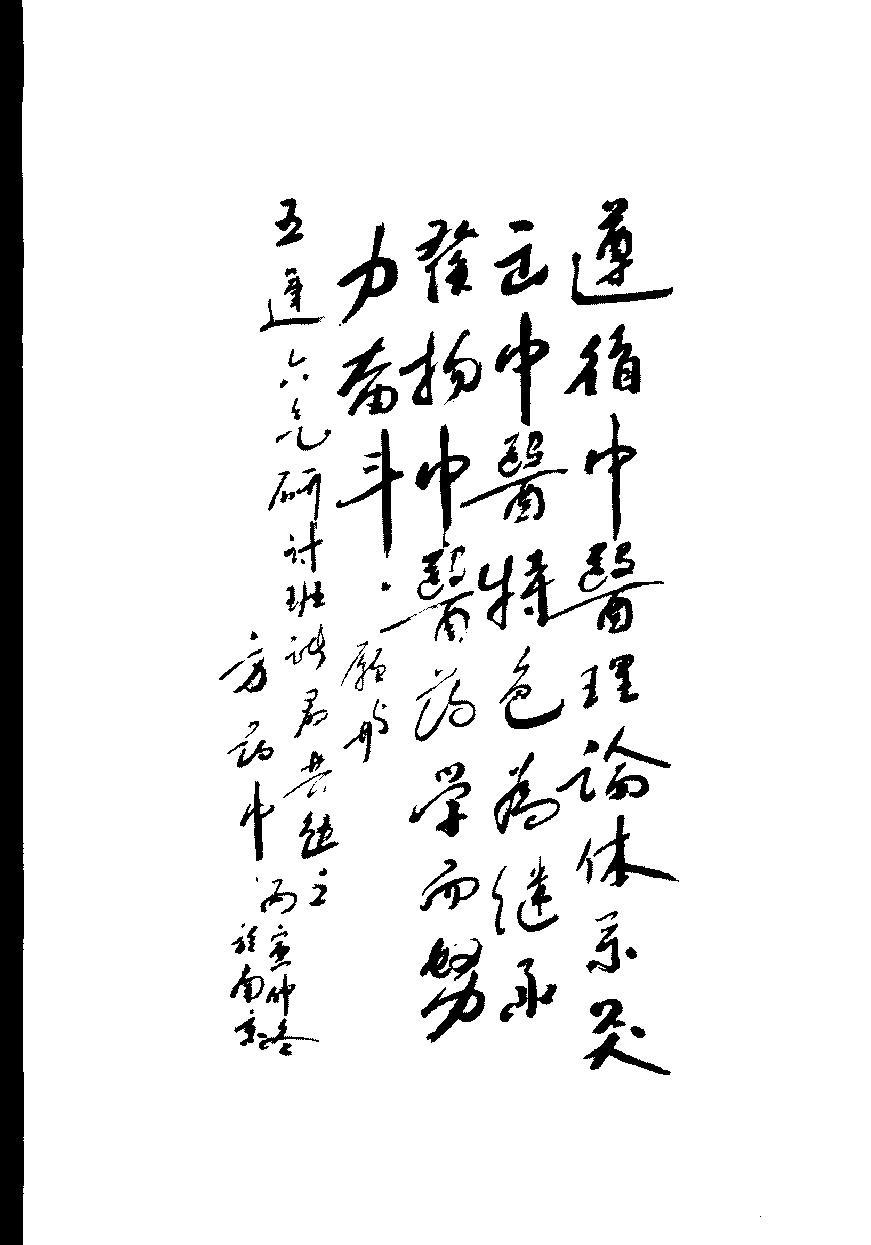 遵循中醫理論体系突
出中醫特色為继承
發扬中醫药学而努
力奋斗．愿与
五運六气研讨班诸君共勉之
方药中
丙寅仲冬
於南京